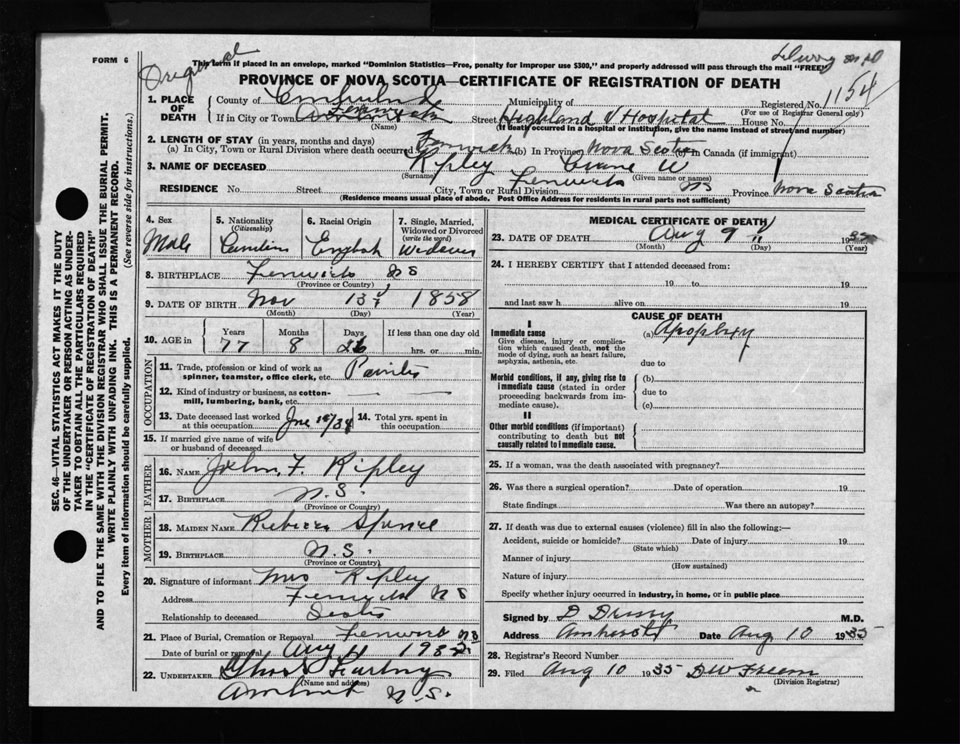 FORM 6
Original
This form if placed in an envelope, marked "Dominion Statistics—Free, penalty for improper use $300," and properly addressed will pass through the mail "FREE"
PROVINCE OF NOVA SCOTIA—CERTIFICATE OF REGISTRATION OF DEATH
1. PLACE OF DEATH County of Municipality of Registered No. 1154
(For use of Registrar General only)
If in City or Town Street Highland V Hospital House No.
(Name) (If death occurred in a hospital or institution, give the name instead of street and number)
2. LENGTH OF STAY (in years, months and days)
(a) In City, Town or Rural Division where death occurred Fenwick (b) In Province Nova Scotia (c) In Canada (if immigrant)
3. NAME OF DECEASED Ripley W
(Surname) (Given name or names)
RESIDENCE No. Street Fenwick NS Province Nova Scotia
City, Town or Rural Division
(Residence means usual place of abode. Post Office Address for residents in rural parts not sufficient)
4. Sex 5. Nationality (Citizenship) 6. Racial Origin 7. Single, Married, Widowed or Divorced (write the word)
Male English
8. BIRTHPLACE Fenwick NS
(Province or Country)
9. DATE OF BIRTH Nov 13 1858
(Month) (Day) (Year)
10. AGE in Years Months Days If less than one day old
77 8 26 hrs. or min.
OCCUPATION
11. Trade, profession or kind of work as spinner, teamster, office clerk, etc.
12. Kind of industry or business, as cotton-mill, lumbering, bank, etc.
13. Date deceased last worked at this occupation
14. Total yrs. spent in this occupation
15. If married give name of wife or husband of deceased
FATHER
16. NAME John F. Ripley
17. BIRTHPLACE N.S.
(Province or Country)
MOTHER
18. MAIDEN NAME Rebecca Spence
19. BIRTHPLACE N.S.
(Province or Country)
20. Signature of informant Mrs Ripley
Address Fenwick NS
Relationship to deceased
21. Place of Burial, Cremation or Removal Fenwick NS
Date of burial or removal Aug 11 1935
22. UNDERTAKER
(Name and address)
Amherst N.S.
MEDICAL CERTIFICATE OF DEATH
23. DATE OF DEATH Aug 9 1935
(Month) (Day) (Year)
24. I HEREBY CERTIFY that I attended deceased from:
19 to 19
and last saw h alive on 19
CAUSE OF DEATH
I
Immediate cause (a) Apoplexy
Give disease, injury or complication which caused death, not the mode of dying, such as heart failure, asphyxia, asthenia, etc.
due to
Morbid conditions, if any, giving rise to immediate cause (stated in order proceeding backwards from immediate cause).
(b)
due to
(c)
II
Other morbid conditions (if important) contributing to death but not causally related to immediate cause.
25. If a woman, was the death associated with pregnancy?
26. Was there a surgical operation? Date of operation 19
State findings Was there an autopsy?
27. If death was due to external causes (violence) fill in also the following:—
Accident, suicide or homicide? Date of injury 19
(State which)
Manner of injury
(How sustained)
Nature of injury
Specify whether injury occurred in industry, in home, or in public place
Signed by D Drury M.D.
Address Amherst Date Aug 10 1935
28. Registrar's Record Number
29. Filed Aug 10 1935
(Division Registrar)
SEC. 46—VITAL STATISTICS ACT MAKES IT THE DUTY
OF THE UNDERTAKER OR PERSON ACTING AS UNDERTAKER TO OBTAIN ALL THE PARTICULARS REQUIRED
IN THE "CERTIFICATE OF REGISTRATION OF DEATH"
AND TO FILE THE SAME WITH THE DIVISION REGISTRAR WHO SHALL ISSUE THE BURIAL PERMIT.
WRITE PLAINLY WITH UNFADING INK. THIS IS A PERMANENT RECORD.
Every item of information should be carefully supplied. (See reverse side for instructions.)